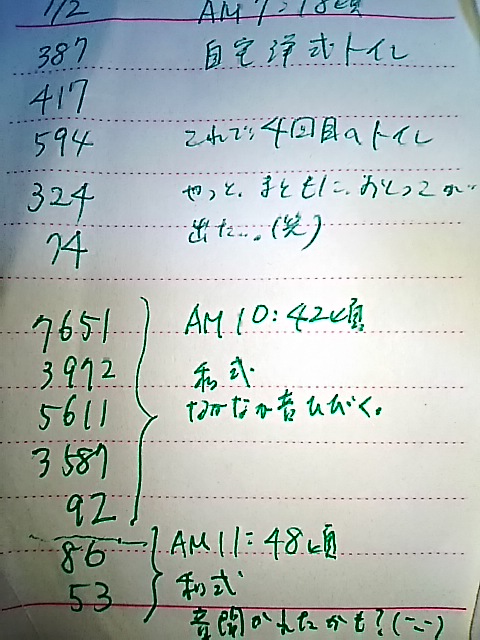 112 AM 7:18頃
387 自宅洋式トイレ
417
594 これで、4回目のトイレ
324 やっと、まともに、おとっこが
74 出た…。(笑)
7651 AM 10:42頃
3972 和式
5611 なかなか音ひびく。
3587
92
86 AM 11:48頃
53 和式
音聞かれたかも?(